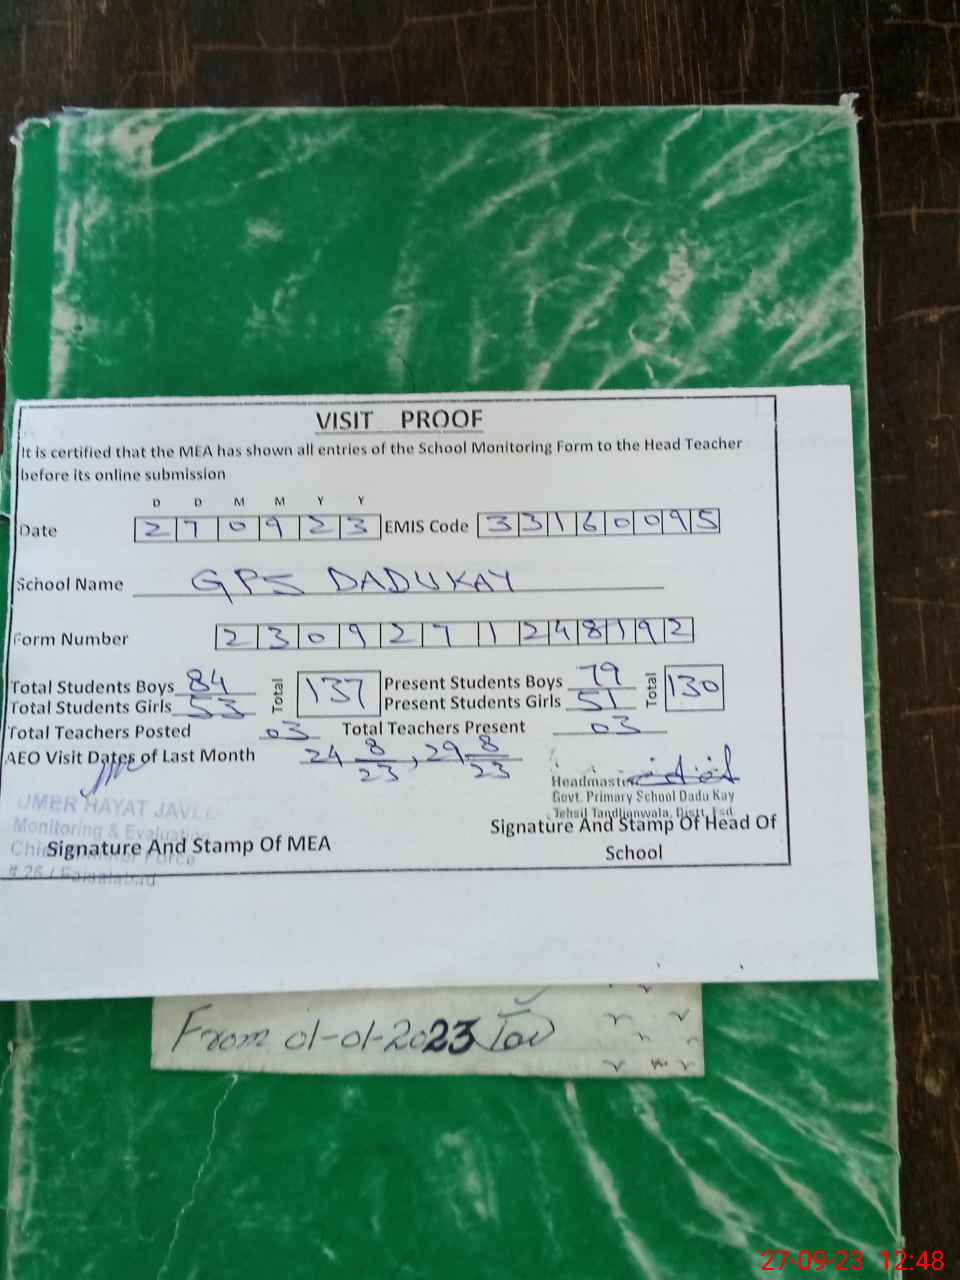 VISIT PROOF
It is certified that the MEA has shown all entries of the School Monitoring Form to the Head Teacher
before its online submission
D D M M Y Y
Date 2 7 0 9 2 3 EMIS Code 3 3 1 6 0 0 9 5
School Name GPS DADUKAY
Form Number 2 3 0 9 2 7 1 2 4 8 1 9 2
Total Students Boys 84 Total 137 Present Students Boys 79 Total 130
Total Students Girls 53 Present Students Girls 51
Total Teachers Posted 03 Total Teachers Present 03
AEO Visit Dates of Last Month 24 8/23, 29 8/23
Headmaster
Govt. Primary School Dadu Kay
Tehsil Tandlianwala, Distt. Fsd.
UMER HAYAT
Monitoring & Evaluation
Force
Faisalabad
Signature And Stamp Of MEA
Signature And Stamp Of Head Of
School
From 01-01-2023 To
27-09-23 12:48